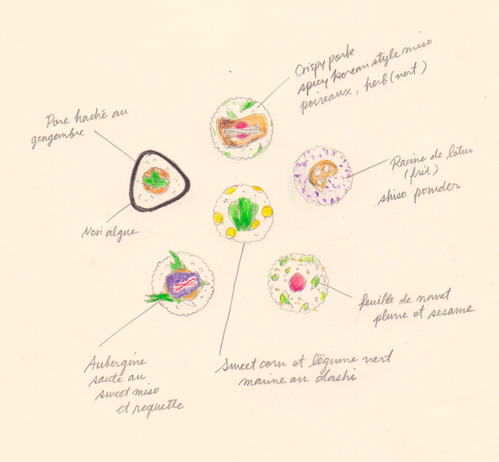 Crispy pork
spicy korean style miso
poireaux, herb (vert)
Porc haché au
gingembre
Racine de lotus
(frit)
shiso powder
Nori algue
feuille de navet
plume et sesame
Aubergine
sauté au
sweet miso
et roquette
Sweet corn et légume vert
marine au dashi